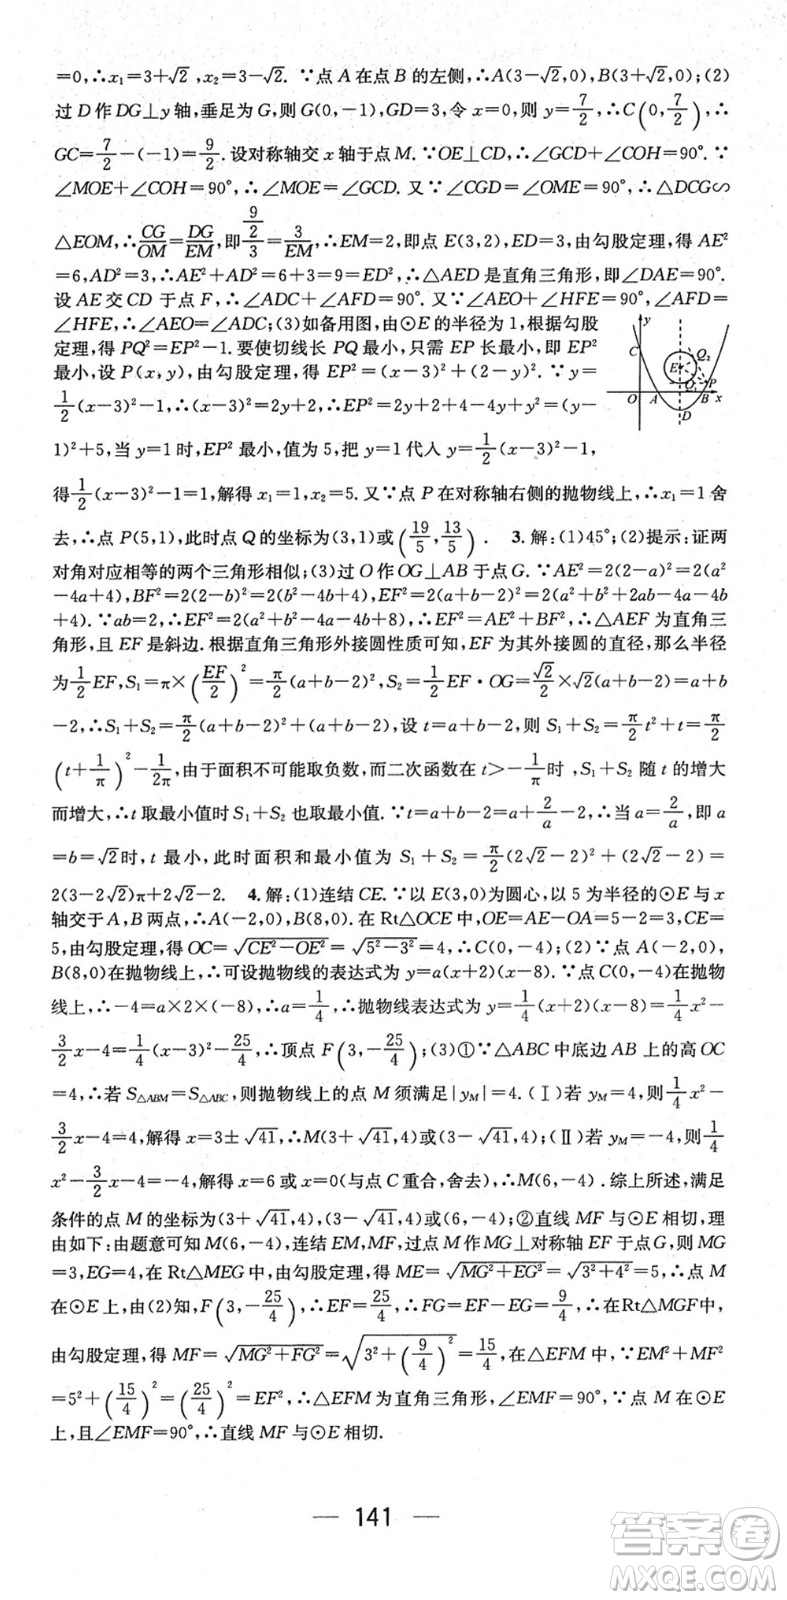 =0,∴x₁=3+√2,x₂=3-√2. ∵点A在点B的左侧,∴A(3-√2,0),B(3+√2,0);(2)
过D作DG⊥y轴,垂足为G,则G(0,-1),GD=3,令x=0,则y=7/2,∴C(0,7/2),∴
GC=7/2-(-1)=9/2. 设对称轴交x轴于点M. ∵OE⊥CD,∴∠GCD+∠COH=90°. ∵
∠MOE+∠COH=90°,∴∠MOE=∠GCD. 又∵∠CGD=∠OME=90°,∴△DCG∽
△EOM,∴CG/OM=DG/EM,即(9/2)/3=3/EM,∴EM=2,即点E(3,2),ED=3,由勾股定理,得AE²
=6,AD²=3,∴AE²+AD²=6+3=9=ED²,∴△AED是直角三角形,即∠DAE=90°.
设AE交CD于点F,∴∠ADC+∠AFD=90°. 又∵∠AEO+∠HFE=90°,∠AFD=
∠HFE,∴∠AEO=∠ADC;(3)如备用图,由⊙E的半径为1,根据勾股
定理,得PQ²=EP²-1. 要使切线长PQ最小,只需EP长最小,即EP²
最小,设P(x,y),由勾股定理,得EP²=(x-3)²+(2-y)². ∵y=
1/2(x-3)²-1,∴(x-3)²=2y+2,∴EP²=2y+2+4-4y+y²=(y-
1)²+5,当y=1时,EP²最小,值为5,把y=1代人y=1/2(x-3)²-1,
得1/2(x-3)²-1=1,解得x₁=1,x₂=5. 又∵点P在对称轴右侧的抛物线上,∴x₁=1舍
去,∴点P(5,1),此时点Q的坐标为(3,1)或(19/5,13/5). 3. 解:(1)45°;(2)提示:证两
对角对应相等的两个三角形相似;(3)过O作OG⊥AB于点G. ∵AE²=2(2-a)²=2(a²
-4a+4),BF²=2(2-b)²=2(b²-4b+4),EF²=2(a+b-2)²=2(a²+b²+2ab-4a-4b+4).
∵ab=2,∴EF²=2(a²+b²-4a-4b+8),∴EF²=AE²+BF²,∴△AEF为直角三
角形,且EF是斜边. 根据直角三角形外接圆性质可知,EF为其外接圆的直径,那么半径
为1/2EF,S₁=π×(EF/2)²=π/2(a+b-2)²,S₂=1/2EF·OG=√2/2×√2(a+b-2)=a+b
-2,∴S₁+S₂=π/2(a+b-2)²+(a+b-2),设t=a+b-2,则S₁+S₂=π/2t²+t=π/2
(t+1/π)²-1/2π,由于面积不可能取负数,而二次函数在t>-1/π时,S₁+S₂随t的增大
而增大,∴t取最小值时S₁+S₂也取最小值. ∵t=a+b-2=a+2/a-2,∴当a=2/a,即a
=b=√2时,t最小,此时面积和最小值为S₁+S₂=π/2(2√2-2)²+(2√2-2)=
2(3-2√2)π+2√2-2. 4. 解:(1)连结CE. ∵以E(3,0)为圆心,以5为半径的⊙E与x
轴交于A,B两点,∴A(-2,0),B(8,0). 在Rt△OCE中,OE=AE-OA=5-2=3,CE=
5,由勾股定理,得OC=√CE²-OE²=√5²-3²=4,∴C(0,-4);(2)∵点A(-2,0),
B(8,0)在抛物线上,∴可设抛物线的表达式为y=a(x+2)(x-8). ∵点C(0,-4)在抛物
线上,∴-4=a×2×(-8),∴a=1/4,∴抛物线表达式为y=1/4(x+2)(x-8)=1/4x²-
3/2x-4=1/4(x-3)²-25/4,∴顶点F(3,-25/4);(3)①∵△ABC中底边AB上的高OC
=4,∴若S△ABM=S△ABC,则抛物线上的点M须满足|yM|=4. (Ⅰ)若yM=4,则1/4x²-
3/2x-4=4,解得x=3±√41,∴M(3+√41,4)或(3-√41,4);(Ⅱ)若yM=-4,则1/4
x²-3/2x-4=-4,解得x=6或x=0(与点C重合,舍去),∴M(6,-4). 综上所述,满足
条件的点M的坐标为(3+√41,4),(3-√41,4)或(6,-4);②直线MF与⊙E相切,理
由如下:由题意可知M(6,-4),连结EM,MF,过点M作MG⊥对称轴EF于点G,则MG
=3,EG=4,在Rt△MEG中,由勾股定理,得ME=√MG²+EG²=√3²+4²=5,∴点M
在⊙E上,由(2)知,F(3,-25/4),∴EF=25/4,∴FG=EF-EG=9/4,∴在Rt△MGF中,
由勾股定理,得MF=√MG²+FG²=√3²+(9/4)²=15/4,在△EFM中,∵EM²+MF²
=5²+(15/4)²=(25/4)²=EF²,∴△EFM为直角三角形,∠EMF=90°. ∵点M在⊙E
上,且∠EMF=90°,∴直线MF与⊙E相切.
y
C
E
Q₂
Q₁
P
O
A
B
x
D
— 141 —
答案圈
MXQE.COM